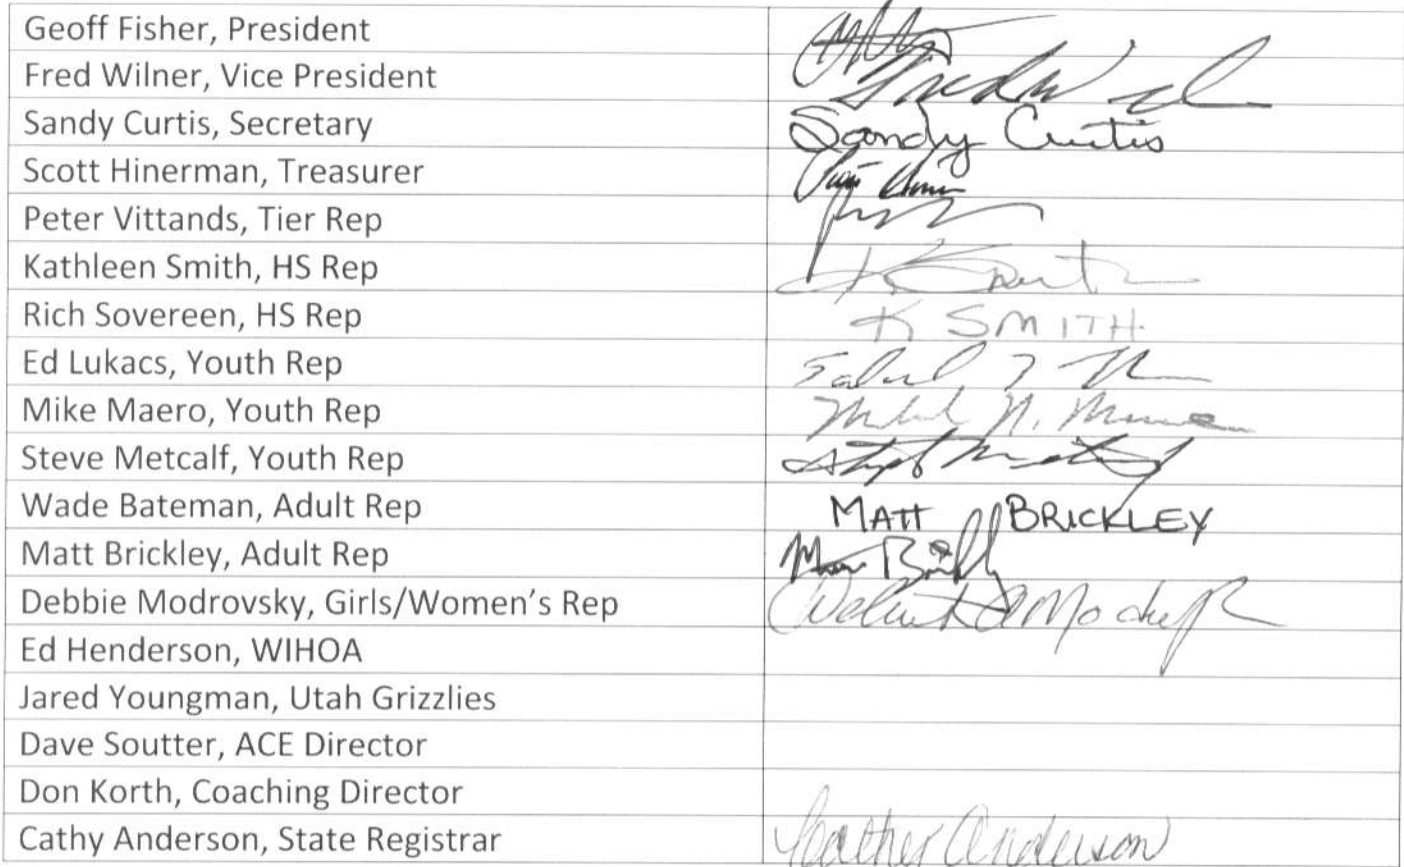 Geoff Fisher, President
Fred Wilner, Vice President
Sandy Curtis, Secretary Sandy Curtis
Scott Hinerman, Treasurer
Peter Vittands, Tier Rep
Kathleen Smith, HS Rep
Rich Sovereen, HS Rep K SMITH
Ed Lukacs, Youth Rep
Mike Maero, Youth Rep
Steve Metcalf, Youth Rep
Wade Bateman, Adult Rep MATT BRICKLEY
Matt Brickley, Adult Rep
Debbie Modrovsky, Girls/Women's Rep
Ed Henderson, WIHOA
Jared Youngman, Utah Grizzlies
Dave Soutter, ACE Director
Don Korth, Coaching Director
Cathy Anderson, State Registrar Anderson